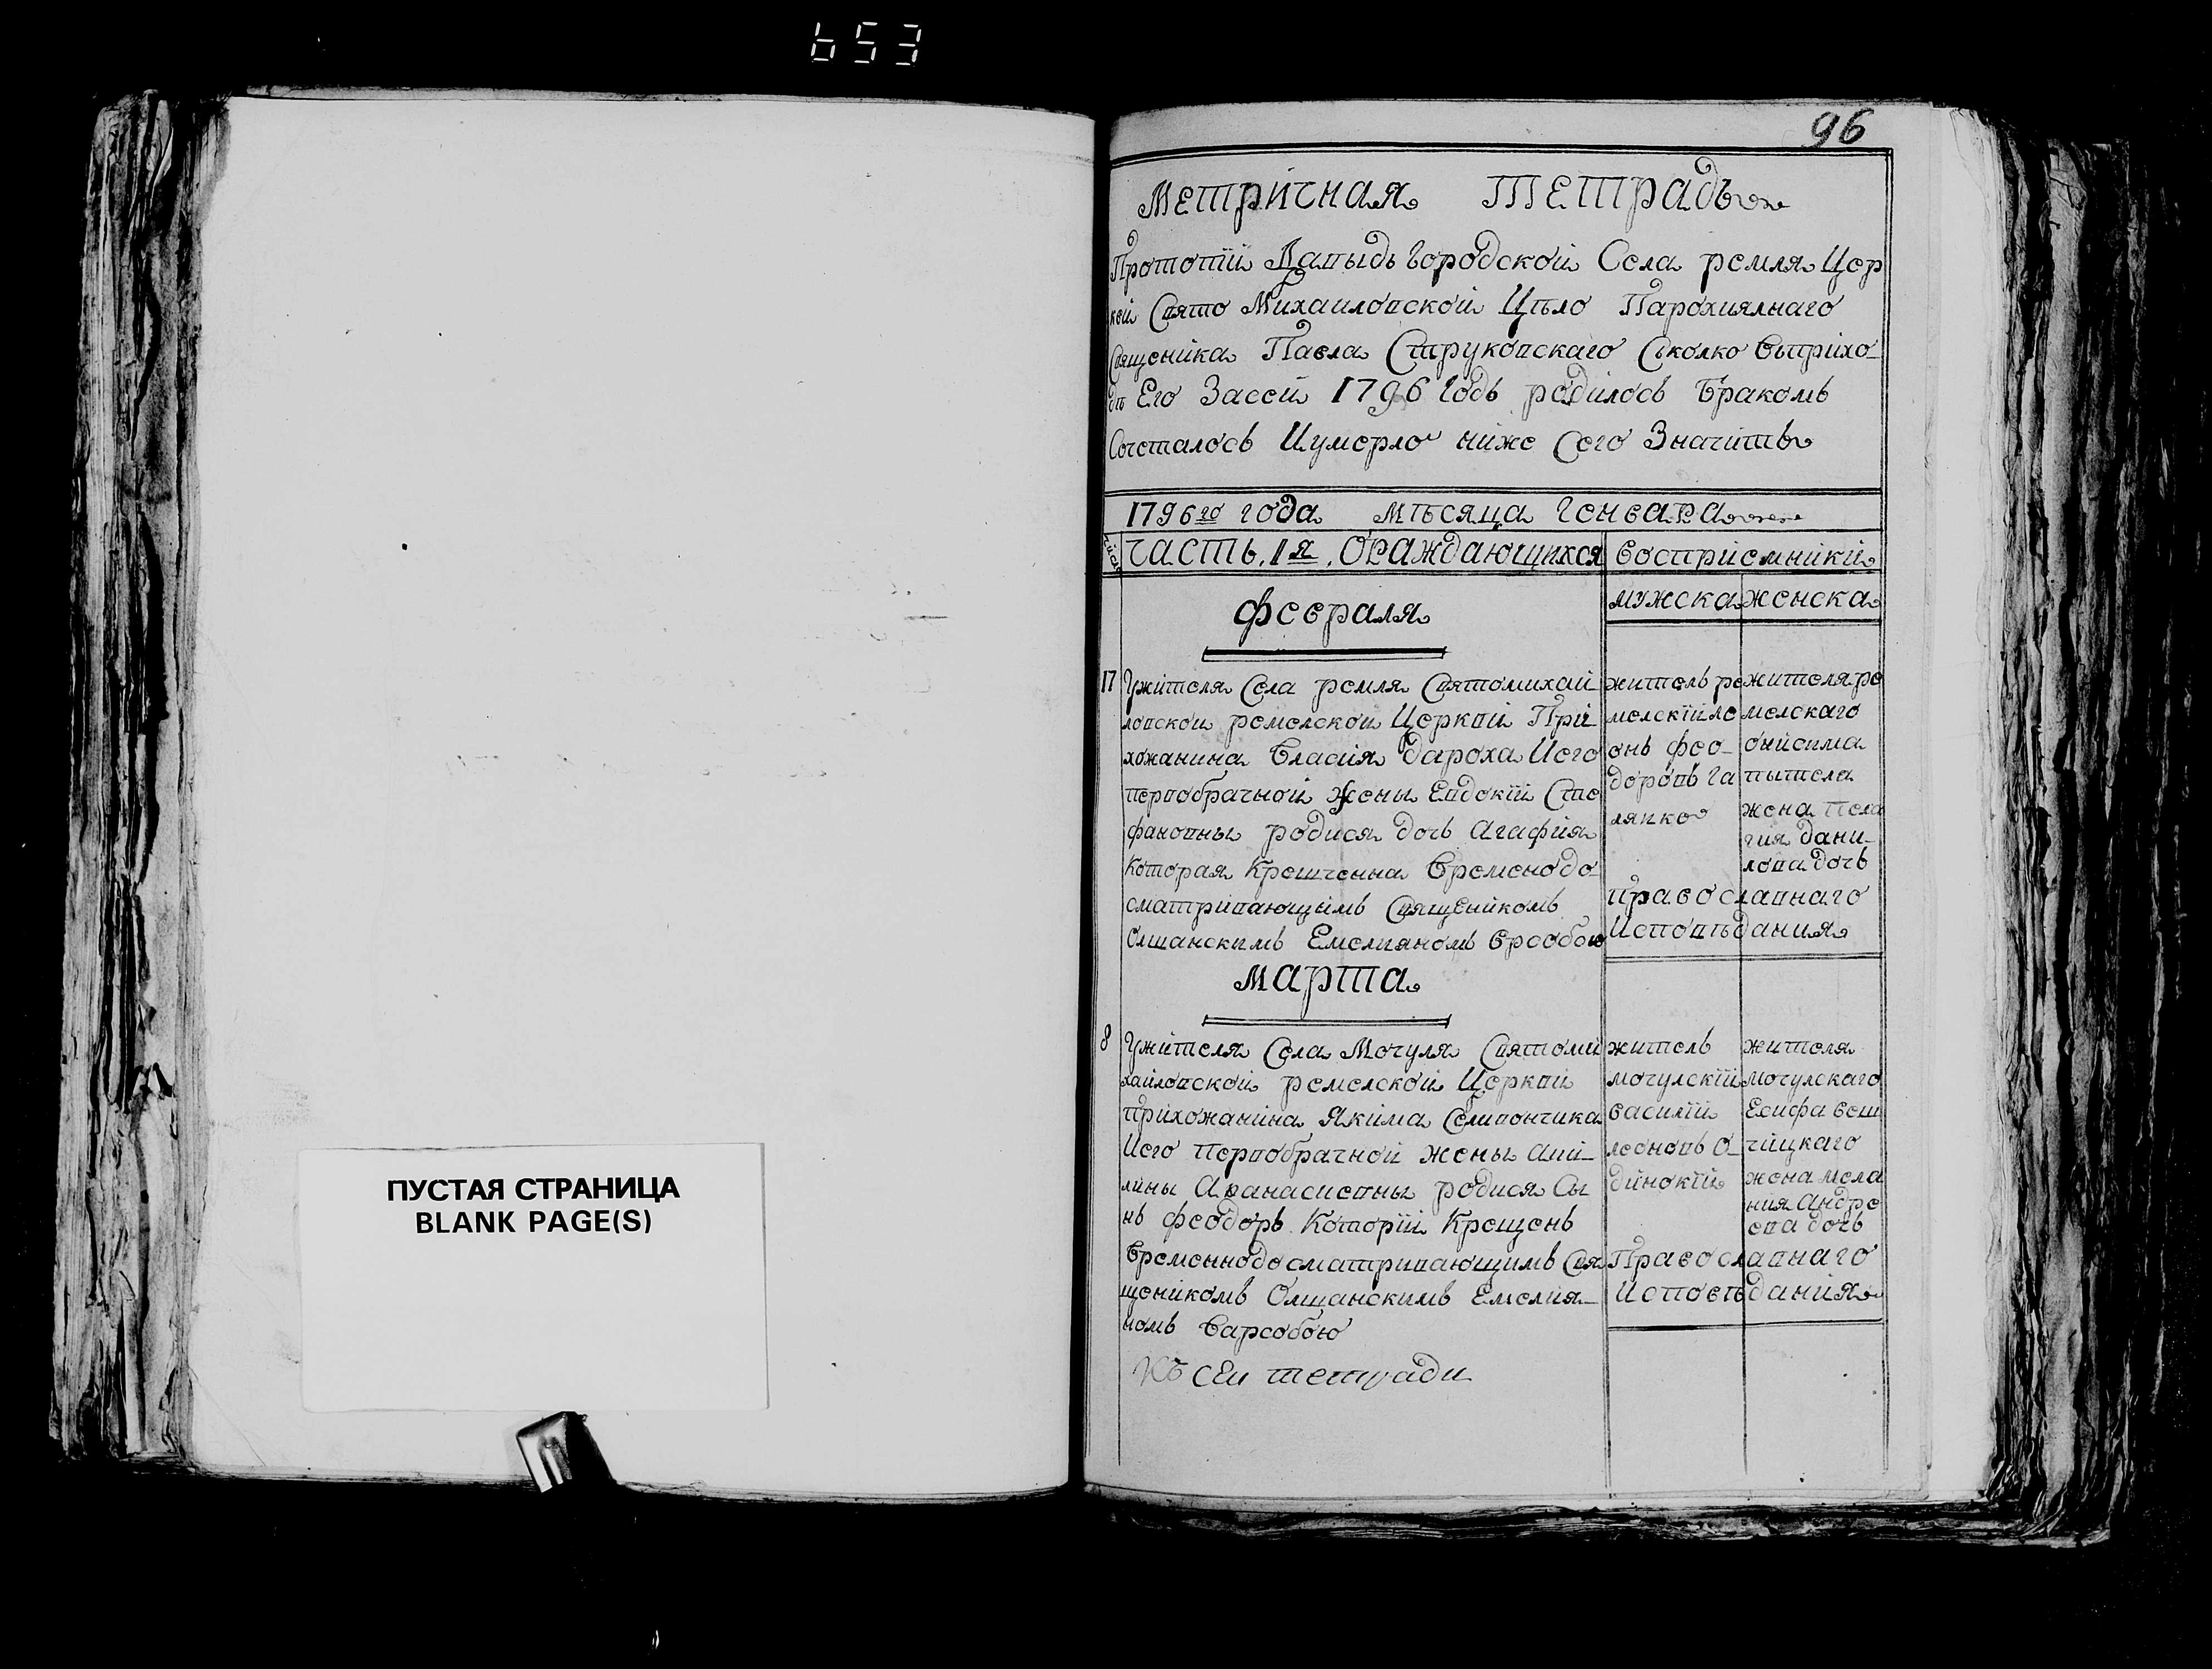 653
ПУСТАЯ СТРАНИЦА
BLANK PAGE(S)
96
Метричная Тетрадь
Протопіи Давыдъ городской Села ремля Цер
кви Свято Михаиловской Цѣло Парохиялнаго
Священика Павла Струковскаго Сколко выприхо
дѣ Его Засей 1796 Годъ родилось Бракомъ
Сочеталось Иумерло ниже Сего Значитъ
1796го года мѣсяца Генваря
число Часть. 1я. Ораждающихся Восприемники
Февраля мужска женска
17 Ужителя Села ремля Святомихай
ловской ремелской Церкви При
хожанина Власія дароха Иего
первобрачной жены Евдокіи Сте
фановны родися дочь Агафия
Которая Крешченна Временодо
сматривающымъ Священикомъ
Олшанскимъ Емелияномъ Врсобою
житель ре
мелскій ле
онъ фео
доровъ га
ляпко
жителя ре
мелскаго
онисима
пытела
жена пела
гия дани
лова дочь
Православнаго
Исповѣдания
Марта
8 Ужителя Села Мочуля Святоми
хайловской ремелской Церкви
прихожанина Якима Селивончика
Иего Первобрачной жены Аки
лины Афанасиевны родися Сы
нъ феодоръ Которій Крещенъ
Временнодосматривающимъ Свя
щеникомъ Олшанскимъ Емелия
номъ Варсобою
житель
мочулскій
василій
леоновъ О
динокій
жителя
мочулскаго
Есифа вош
чицкаго
жена мела
ния Андре
ева дочь
Православнаго
Исповѣдания
Къ сеи тетради